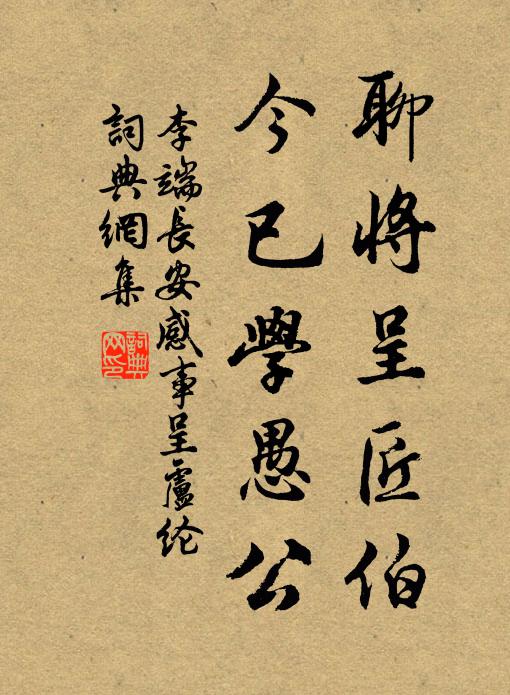 聊將呈匠伯
今已學愚公
李端長安感事呈盧纶
詞典網集
詞典网印